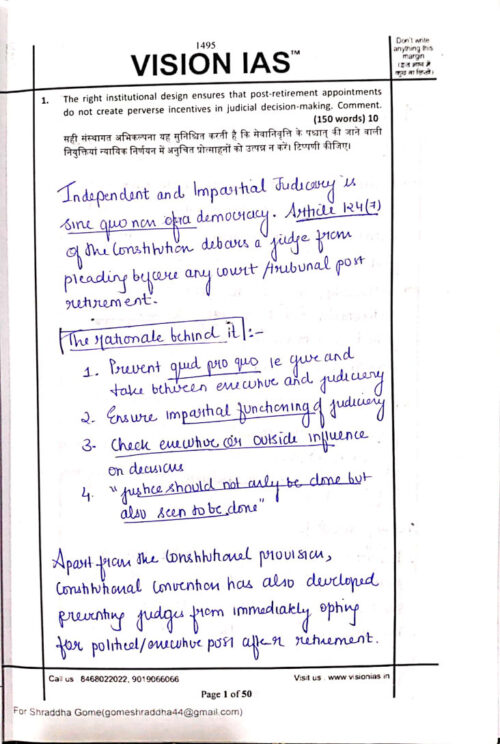 1495
Don't write
anything this
margin
(इस भाग में
कुछ ना लिखें)
VISION IAS™
1. The right institutional design ensures that post-retirement appointments
do not create perverse incentives in judicial decision-making. Comment.
(150 words) 10
सही संस्थागत अभिकल्पना यह सुनिश्चित करती है कि सेवानिवृत्ति के पश्चात् की जाने वाली
नियुक्तियां न्यायिक निर्णयन में अनुचित प्रोत्साहनों को उत्पन्न न करें। टिप्पणी कीजिए।
Independent and Impartial Judiciary is
sine quo non of a democracy. Article 124(7)
of the Constitution debars a judge from
pleading before any court/tribunal post
retirement.
The rationale behind it :-
1. Prevent quid pro quo ie give and
take between executive and judiciary
2. Ensure impartial functioning of judiciary
3. Check executive or outside influence
on decisions
4. "Justice should not only be done but
also seen to be done"
Apart from the Constitutional provision,
Constitutional Convention has also developed
preventing judges from immediately opting
for political/executive post after retirement.
Call us 8468022022, 9019066066
Visit us www.visionias.in
Page 1 of 50
For Shraddha Gome(gomeshraddha44@gmail.com)